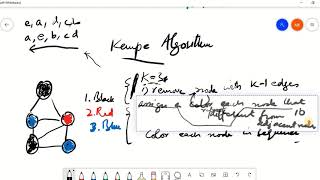 e, a, d, c, b
a, e, b, c d
Kempe Algorithm
K=3
1) remove node with K-1 edges
assigns a color each node that
different from
adjacent node
10
1. Black
2. Red
3. Blue
Color each node in sequence